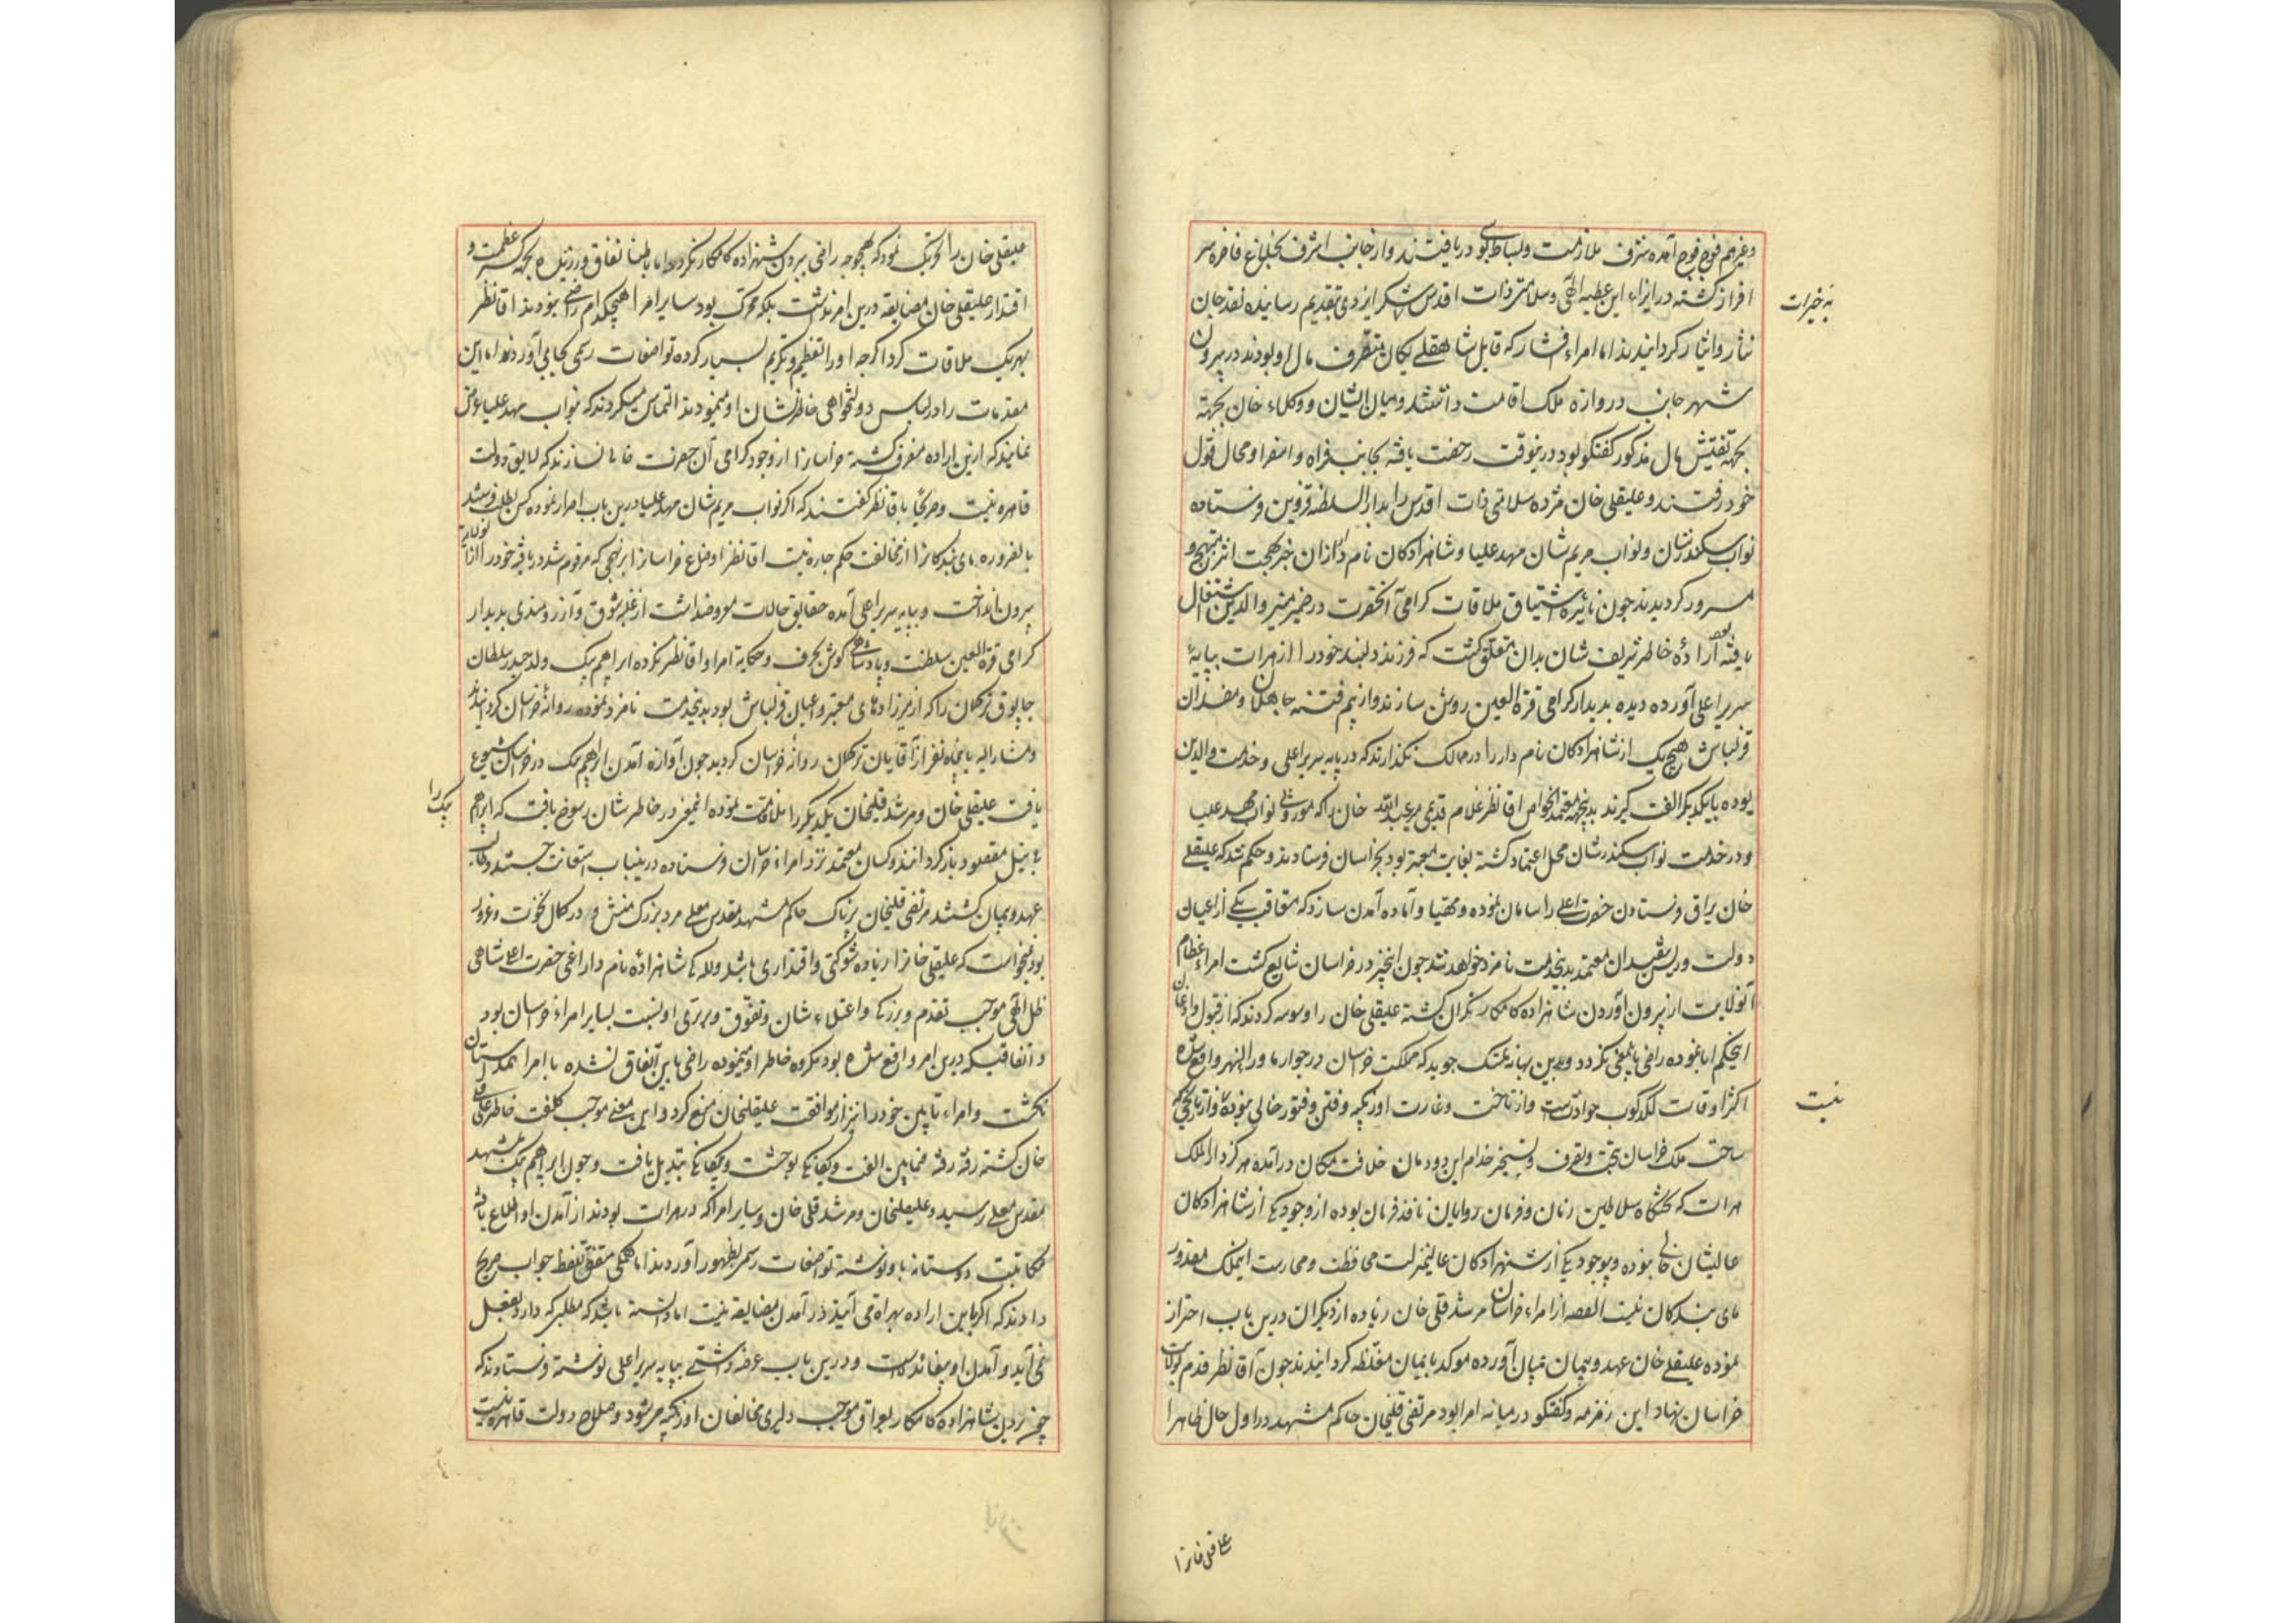 وغیرهم فوج فوج آمده بشرف ملازمت و بساط بوسی دریافتند و از جانب اشرف بخلاع فاخره سر
افراز گشته در ازاء این عطیه الهی و سلامتی ذات اقدس شکر ایزدی بتقدیم رسانیده نقد جان
به خیرات
نثار و ایثار گردانیدند اما امراء افشار که قابل شاهقلی یکان متصرف مال او بودند در بیرون
شهر جانب دروازه ملک اقامت داشتند و میان ایشان و وکلاء خان بجهته
بجهة تفتیش مال مذکور گفتگو بود درینوقت رخصت یافته بجانب فراه و اسفزار و محال قتول
خود رفتند و علیقلی خان مژده سلامتی ذات اقدس را بدار السلطنه قزوین فرستاده
نواب سکندرشان و نواب مریم شان مهد علیا و شاهزادکان نام دار ازان خبر بهجت اثر مبتهج و
مسرور گردیدند چون نائره اشتیاق ملاقات گرامی آنحضرت در ضمیر منیر والدین اشتعال
یافته بود ارادهٔ خاطر شریف شان بدان متعلق گشت که فرزند دلبند خود را از هرات بپایهٔ
سریر اعلی آورده دیده بدیدار گرامی قرة العین روشن سازند و از بیم فتنه جاهلان و مفسدان
قزلباش هیچ یک از شاهزادکان نام دار را در ممالک نگذارند که در پایه سریر اعلی و خدمت والدین
بوده بایکدیگر الفت گیرند بدینجهة معتمد الخواص اقا نظر غلام قدیمی میر عبدالله خان را که موروثی نواب مهد علیا
و در خدمت نواب سکندرشان محل اعتماد گشته بغایت معتبر بود بخراسان فرستادند و حکم شد که علیقلی
خان یراق فرستادن حضرت اعلی را سامان نموده و مهیا و آماده آمدن سازد که متعاقب یکی از اعیان
دولت و ریش سفیدان معتمد بدینخدمت نامزد خواهد شد چون اینخبر در خراسان شایع گشت امراء عظام
آنولایت از بیرون آوردن شاهزاده کامکار نگران گشته علیقلی خان را وسوسه کردند که از قبول و اذعان
اینحکم ابا نموده راضی باینمعنی نگردد و بدین بهانه تمسک جوید که مملکت خراسان در جوار ماوراء النهر واقع شده
اکثر اوقات لگدکوب حوادثست و از تاخت و غارت اوزبکیه و فتن و فتور خالی نبوده و از تاریخی که
نیست
ساحت ملک خراسان بتحت تصرف و تسخیر خدام این دودمان خلافت مکان درآمده هرگز دار الملک
هرات که تختگاه سلاطین زمان و فرمان روایان نافذ فرمان بوده از وجود یکی از شاهزادکان
عالیشان خالی نبوده و بوجود یکی از شهزادکان عالیمنزلت محافظت و محارست اینملک مقدور
مای بندگان نیست القصه از امراء خراسان مرشد قلی خان زیاده از دیگران درین باب احتراز
نموده علیقلی خان عهد و پیمان بمیان آورده موکد بایمان مغلظه گردانیدند چون آقا نظر قدم بولایت
خراسان نهاد این زمزمه و گفتگو در میانه امرا بود مرتضی قلیخان حاکم مشهد در اول حال ظاهرا
علی قلی خانرا
علیقلی خان را تحریک نمود که بهیچوجه راضی ببردن شهزاده کامکار نگردد اما باطنا نفاق ورزیده بجهة کسر عظمت و
اقتدار علیقلی خان مضایقه درین امر نداشت بلکه محرک بود سایر امرا هیچکدام راضی نبودند اقا نظر
بهریک ملاقات کرد اگرچه او را تعظیم و تکریم بسیار کرده تواضعات رسمی بجای می آوردند اما این
مقدمات را در لباس دولتخواهی خاطرنشان او مینمودند التماس میکردند که بنواب مهد علیا عرض
نمایند که ازین اراده منصرف گشته خراسانرا از وجود گرامی آن حضرت خالی نسازند که لایق دولت
قاهره نیست و صریحا باقا نظر گفتند که اگر نواب مریم شان مهد علیا درین باب اصرار نموده کس بطلب فرستد
بالضروره مای بندگانرا از مخالفت حکم چاره نیست اقا نظر اوضاع خراسانرا برنهجی که مرقوم شد دریافته خود را از آنولایة
بیرون انداخت و بپایه سریر اعلی آمده حقایق حالات معروضداشت از غلبه شوق و آرزومندی بدیدار
گرامی قرة العین سلطنت و پادشاهی گوش بحرف و حکایة امرا و اقا نظر نکرده ابراهیم بیک ولد حیدر سلطان
چابوق ترکمان را که از میرزادهای معتبر و اعیان قزلباش بود بدینخدمت نامزد نموده روانهٔ خراسان گردانیدند
و مشار الیه با پنجاه نفر از آقایان ترکمان روانهٔ خراسان گردید چون آوازه آمدن ابراهیم بیک در خراسان شیوع
یافت علیقلی خان و مرشد قلیخان یکدیگر را ملاقات نموده اینمعنی در خاطر شان رسوخ یافت که ابراهیم
بیک را
بی نیل مقصود بازگردانند و کسان معتمد نزد امراء خراسان فرستاده درینباب استعانت جستند و طالب
عهد و پیمان گشتند مرتضی قلیخان پرناک حاکم مشهد مقدس معلی مرد بزرگ منش و در کمال نخوت و غرور
بود نمیخواست که علیقلی خانرا زیاده شوکتی و اقتداری باشد و للهٔ شاهزادهٔ نام دار اعنی حضرت اعلی شاهی
ظل الهی موجب تقدم و بزرگی و اعتلاء شان و تفوق و برتری او نسبت بسایر امراء خراسان بود
و اتفاقیکه درین امر واقع شده بود مکروه خاطر او مینموده راضی باین اتفاق نشده با امرا همداستان
نگشت و امراء تابین خود را نیز از موافقت علیقلیخان منع کرد و این معنی موجب کلفت خاطر علی قلی
خان گشته رفته رفته فیمابین الفت و یگانگی بوحشت و بیگانگی تبدیل یافت و چون ابراهیم بیک بمشهد
مقدس معلی رسید و علیقلیخان و مرشد قلی خان و سایر امرا که در هرات بودند از آمدن او اطلاع یافته
مکاتبت دوستانه باو نوشته تواضعات رسمی بظهور آوردند اما همگی متفق اللفظ جواب صریح
دادند که اگر باین اراده بهراة می آیند در آمدن مضایقه نیست اما دانسته باشد که مطلبی که دارد بفعل
نمی آید و آمدن او بیفائده است و درین باب عرضه داشتی بپایه سریر اعلی نوشته فرستادند که
چون بردن شاهزاده کامکار بعراق موجب دلیری مخالفان اوزبکیه میشود و صلاح دولت قاهره نیست